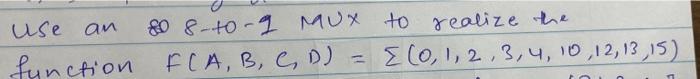 Use an 8-to-1 MUX to realize the
function F(A, B, C, D) = Σ(0, 1, 2, 3, 4, 10, 12, 13, 15)